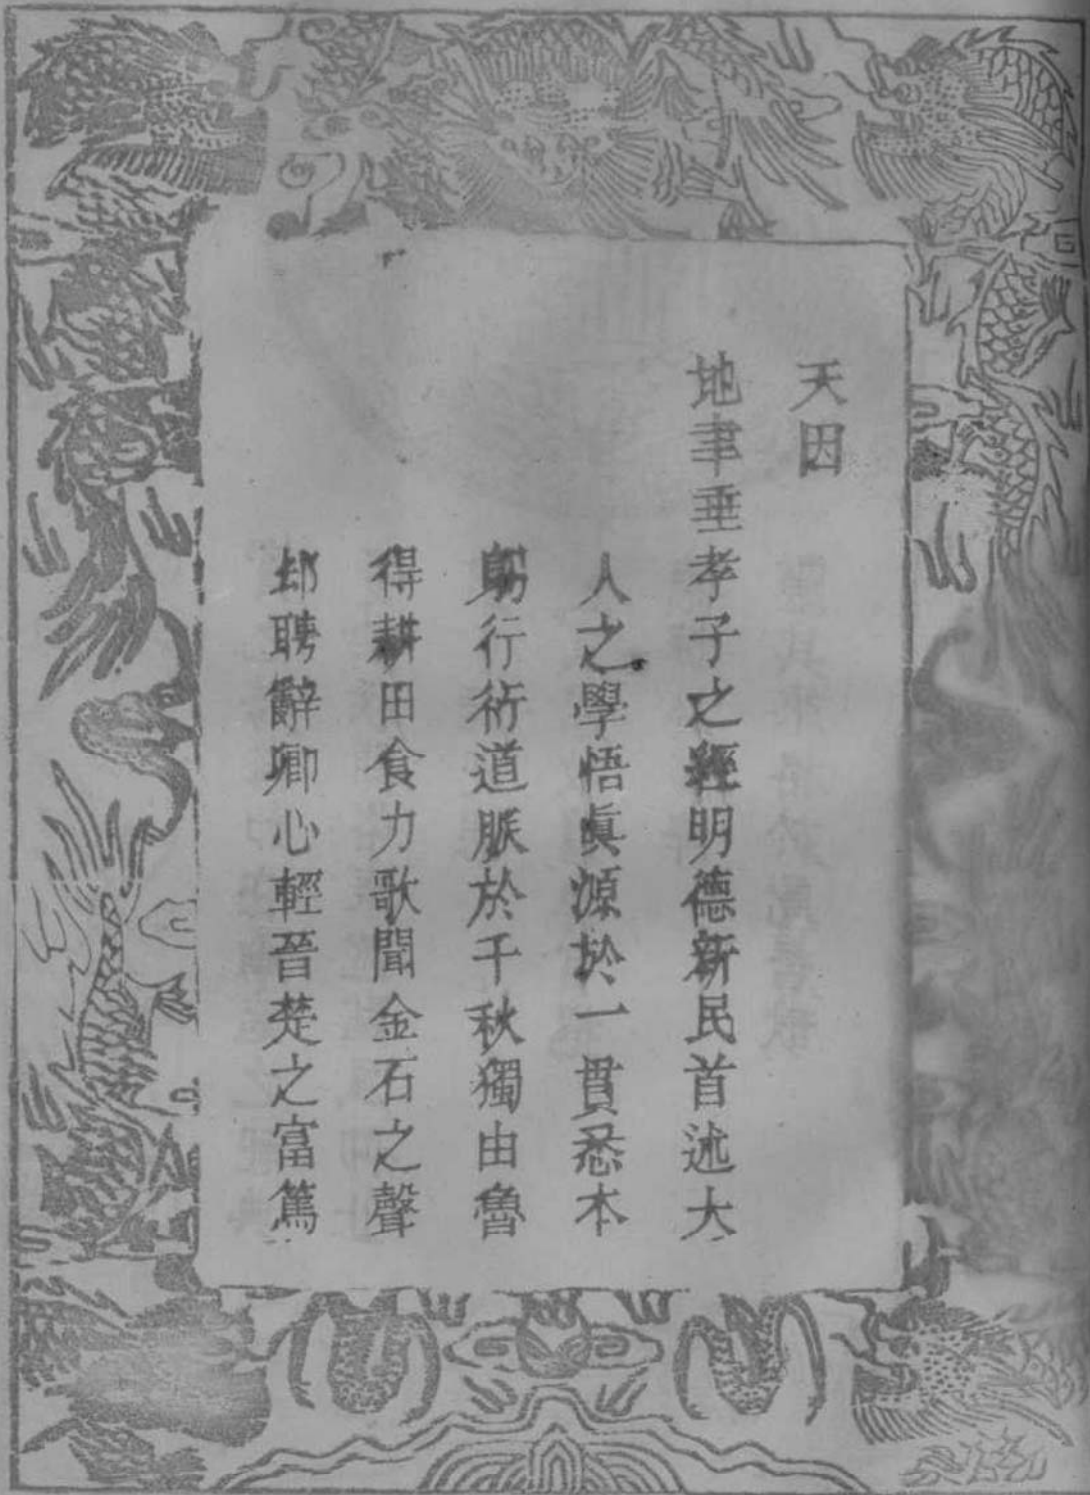 天因
地聿垂孝子之經明德新民首述大
人之學悟眞源於一貫忝本
躬行衍道脈於千秋獨由魯
得耕田食力歌聞金石之聲
却聘辭卿心輕晉楚之富篤